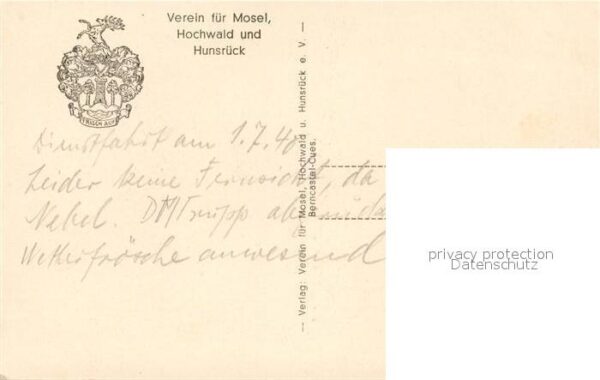 Verein für Mosel,
Hochwald und
Hunsrück
Dienstfahrt am 1.7.40
Leider keine Fernsicht, da
Nebel.
Wetterfrösche anwesend
— Verlag: Verein für Mosel, Hochwald u. Hunsrück e. V. —
Berncastel-Cues.
privacy protection
Datenschutz